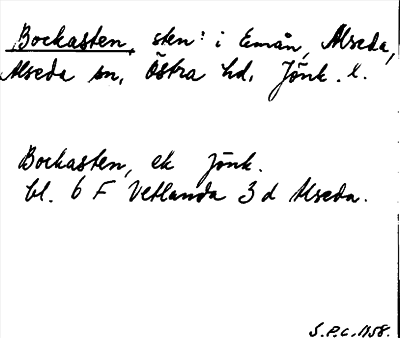 Bockasten, sten: i Emån, Alseda,
Alseda sn, Östra hd, Jönk. l.
Bockasten, ek Jönk.
bl. 6 F Vetlanda 3 d Alseda.
S.P.C. 1958.